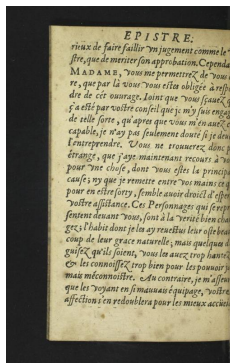 EPISTRE:
rieux de faire faillir vn jugement comme le v
stre, que de meriter son approbation. Cependa
MADAME, vous me permettrez de vous
re, que par là vous vous estes obligée à resp
dre de cét ouurage. Ioint que vous sçauez q
j'a esté par vostre conseil que je m'y suis engag
de telle sorte, qu'apres que vous m'en auez c
capable, je n'ay pas seulement douté si je deu
l'entreprendre. Vous ne trouuerez donc p
étrange, que j'aye maintenant recours à vo
pour vne chose, dont vous estes la principa
cause; ny que je remette entre vos mains ce q
pour en estre sorty, semble auoir droict d'esper
vostre assistance. Ces Personnages qui se repre
sentent deuant vous, sont à la verité bien cha
gez; l'habit dont je les ay reuestus leur oste beau
coup de leur grace naturelle; mais quelques d
guisez qu'ils soient, vous les auez trop hantez
& les connoissez trop bien pour les pouuoir ja
mais méconnoistre. Au contraire, je m'asseur
que les voyant en si mauuais équipage, vostre
affection s'en redoublera pour les mieux accüeil